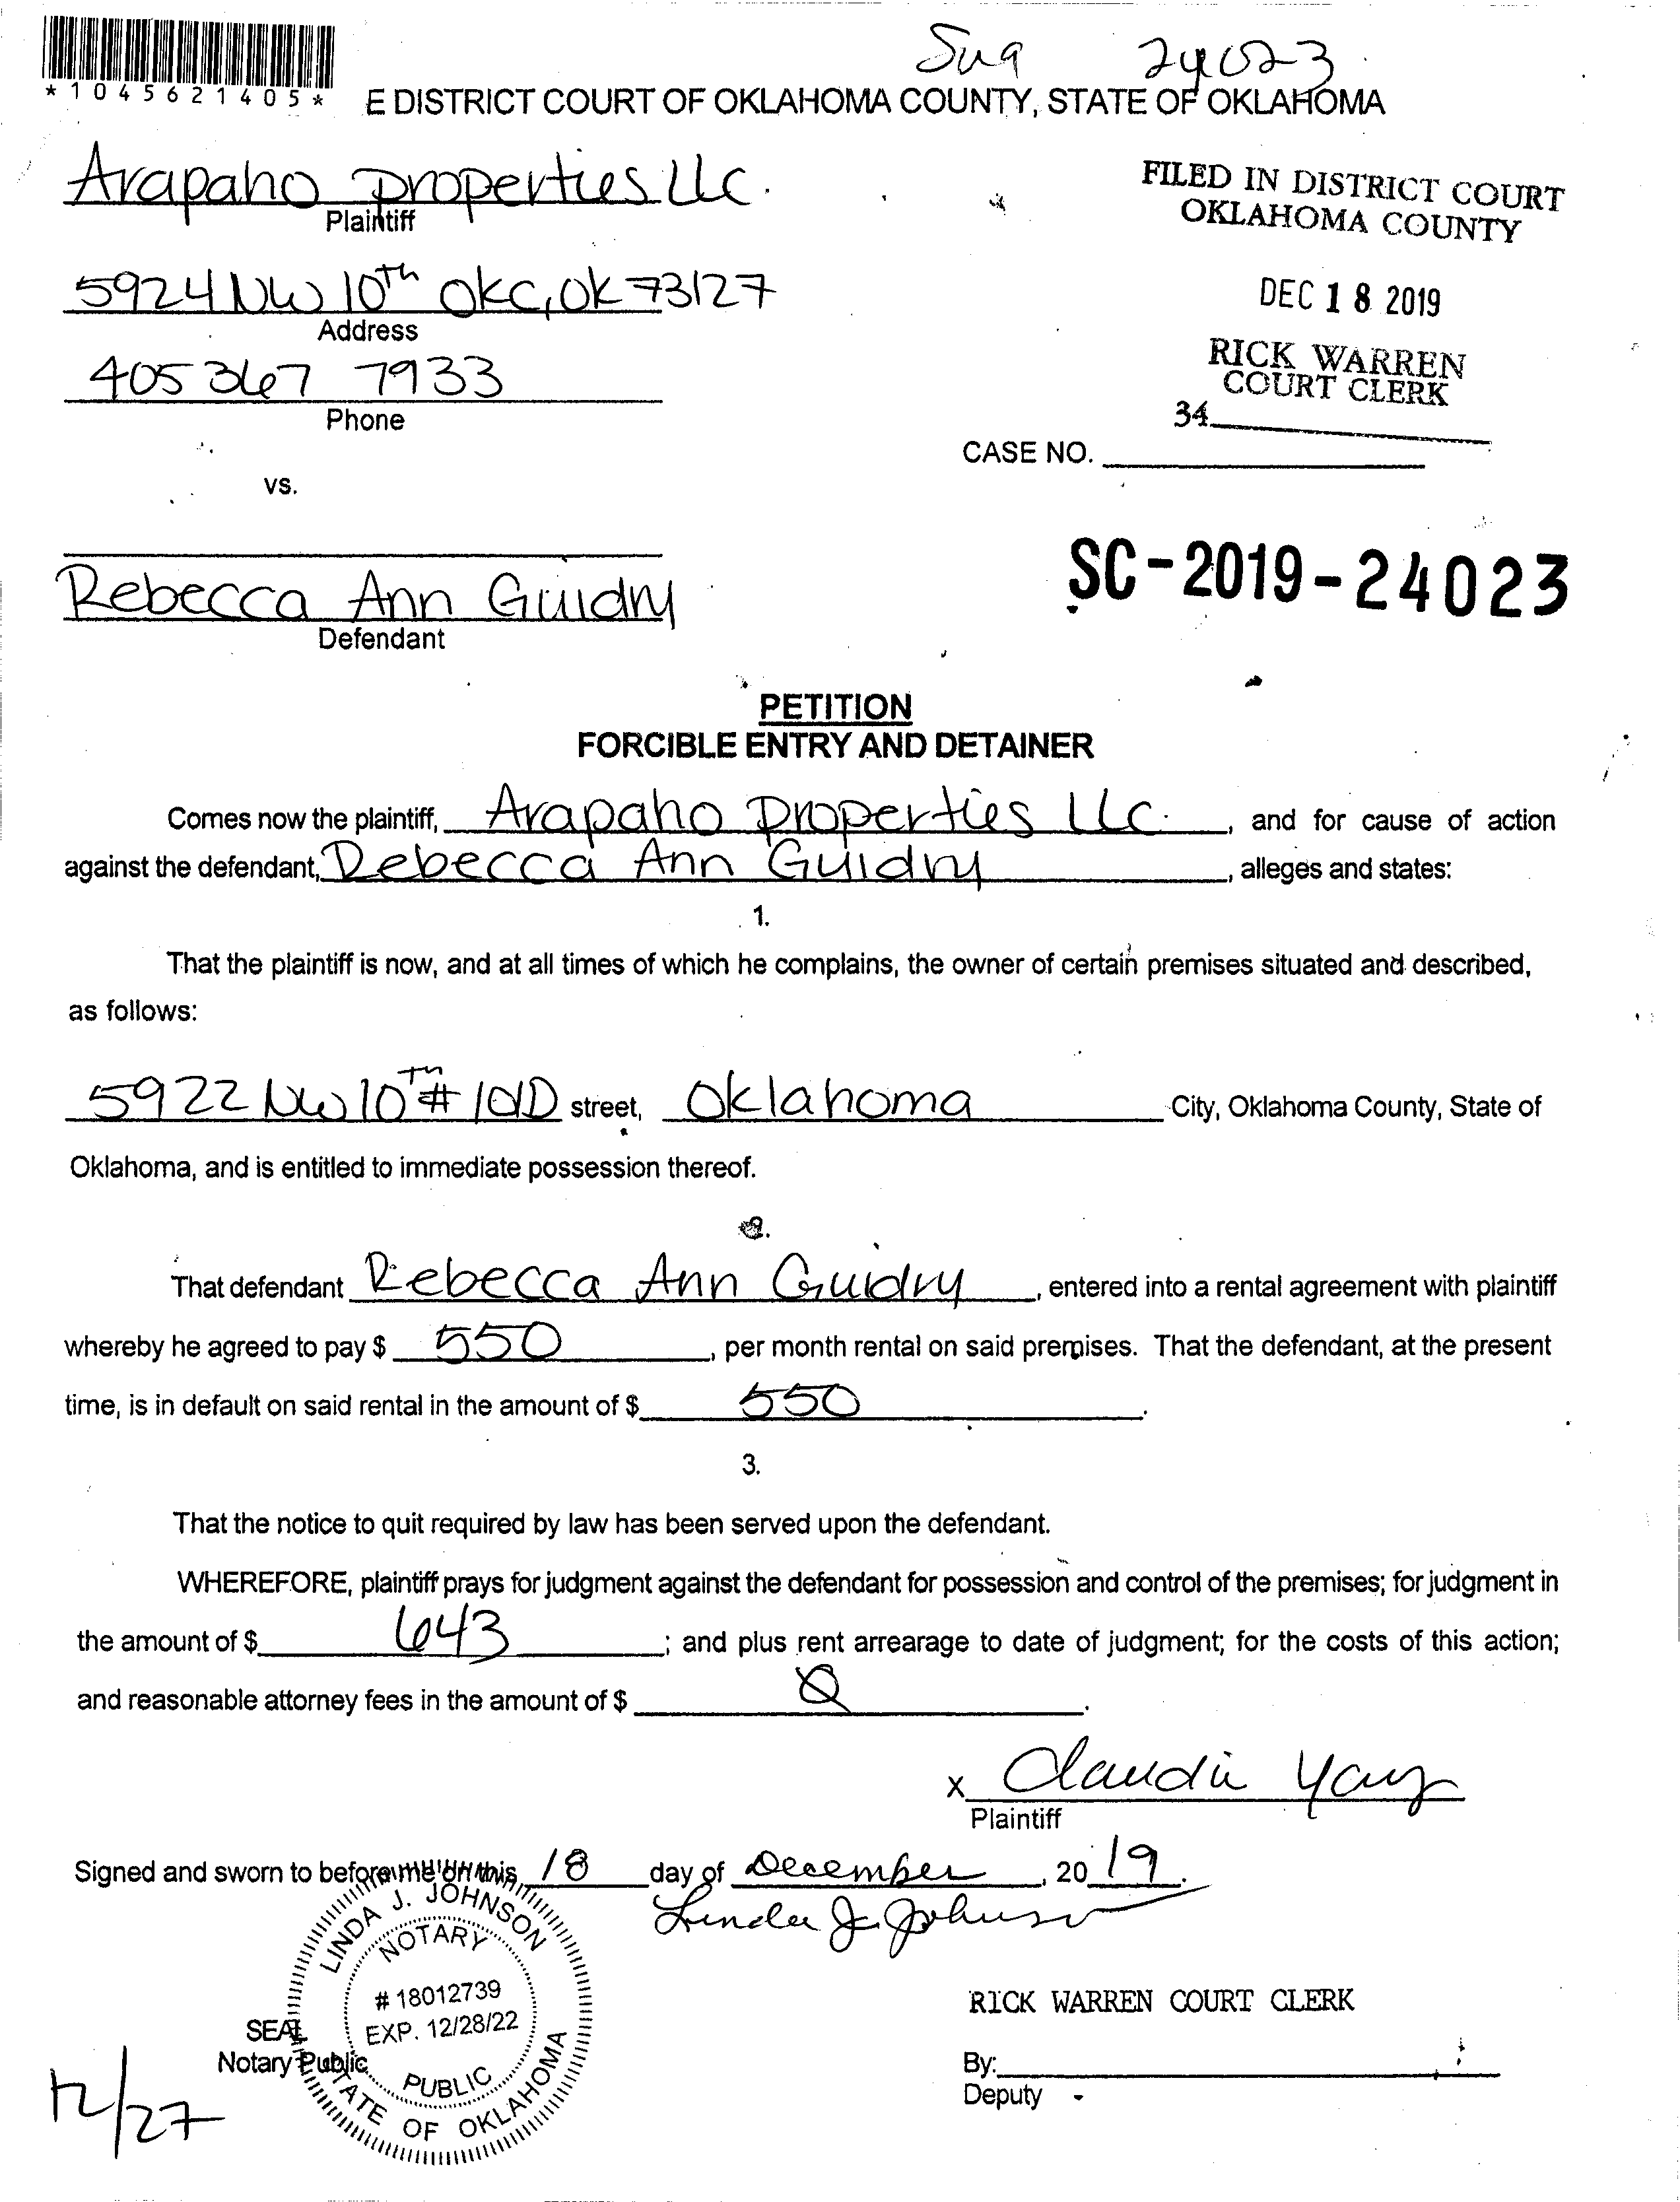 24023
*1045621405*
E DISTRICT COURT OF OKLAHOMA COUNTY, STATE OF OKLAHOMA
Arapaho Properties LLC.
Plaintiff
FILED IN DISTRICT COURT
OKLAHOMA COUNTY
5924 NW 10th OKC, OK 73127
Address
DEC 18 2019
405 367 7933
Phone
RICK WARREN
COURT CLERK
34
CASE NO.
vs.
SC-2019-24023
Rebecca Ann Guidry
Defendant
PETITION
FORCIBLE ENTRY AND DETAINER
Comes now the plaintiff, Arapaho Properties LLC. , and for cause of action
against the defendant, Rebecca Ann Guidry , alleges and states:
1.
That the plaintiff is now, and at all times of which he complains, the owner of certain premises situated and described,
as follows:
5922 NW 10th # 101D street, Oklahoma City, Oklahoma County, State of
Oklahoma, and is entitled to immediate possession thereof.
2.
That defendant Rebecca Ann Guidry , entered into a rental agreement with plaintiff
whereby he agreed to pay $ 550 , per month rental on said premises. That the defendant, at the present
time, is in default on said rental in the amount of $ 550 .
3.
That the notice to quit required by law has been served upon the defendant.
WHEREFORE, plaintiff prays for judgment against the defendant for possession and control of the premises; for judgment in
the amount of $ 643 ; and plus rent arrearage to date of judgment; for the costs of this action;
and reasonable attorney fees in the amount of $ 0 .
X Claudia
Plaintiff
Signed and sworn to before me on this 18 day of December , 20 19 .
Linda J. Johnson
LINDA J. JOHNSON
NOTARY
# 18012739
EXP. 12/28/22
PUBLIC
STATE OF OKLAHOMA
SEAL
Notary Public
RICK WARREN COURT CLERK
By:
Deputy
12/27